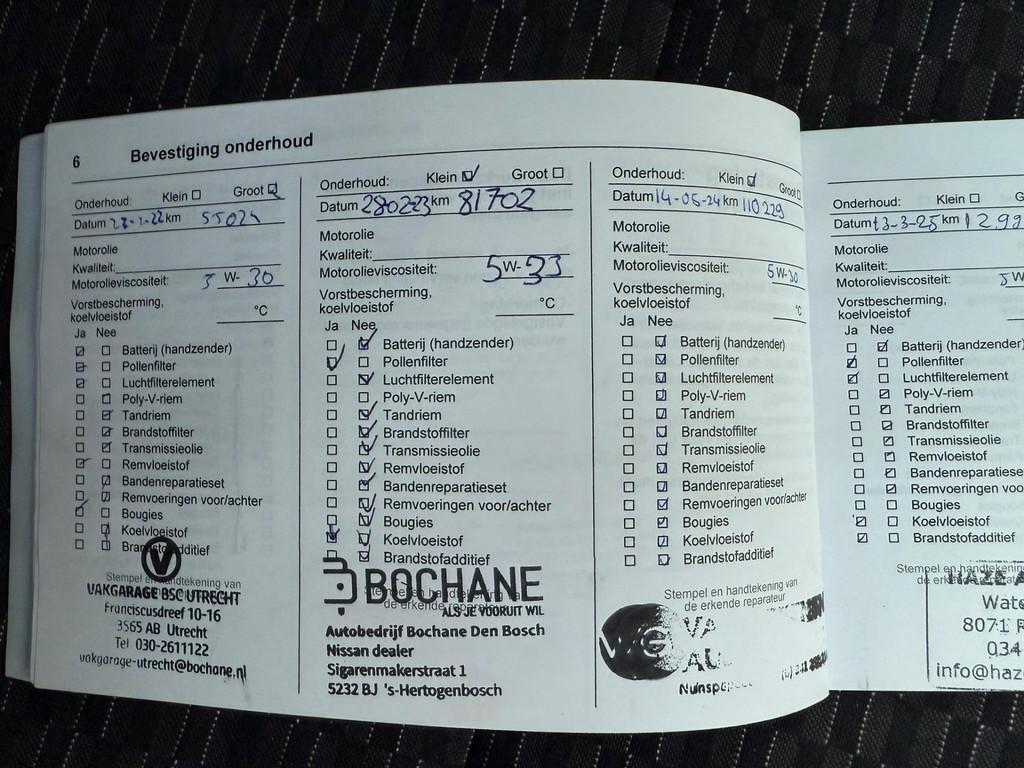 6 Bevestiging onderhoud
Onderhoud: Klein Groot
Datum km 55024
Motorolie
Kwaliteit:
Motorolieviscositeit: 5 W- 30
Vorstbescherming,
koelvloeistof °C
Ja Nee
Batterij (handzender)
Pollenfilter
Luchtfilterelement
Poly-V-riem
Tandriem
Brandstoffilter
Transmissieolie
Remvloeistof
Bandenreparatieset
Remvoeringen voor/achter
Bougies
Koelvloeistof
Brandstofadditief
Stempel en handtekening van
VAKGARAGE BSC UTRECHT
Franciscusdreef 10-16
3565 AB Utrecht
Tel 030-2611122
vakgarage-utrecht@bochane.nl
Onderhoud: Klein Groot
Datum 280223 km 81702
Motorolie
Kwaliteit:
Motorolieviscositeit: 5 W-
Vorstbescherming,
koelvloeistof °C
Ja Nee
Batterij (handzender)
Pollenfilter
Luchtfilterelement
Poly-V-riem
Tandriem
Brandstoffilter
Transmissieolie
Remvloeistof
Bandenreparatieset
Remvoeringen voor/achter
Bougies
Koelvloeistof
Brandstofadditief
BOCHANE
ALS JE VOORUIT WIL
de erkende reparateur
Autobedrijf Bochane Den Bosch
Nissan dealer
Sigarenmakerstraat 1
5232 BJ 's-Hertogenbosch
Onderhoud: Klein Groot
Datum 14-06-24 km 110229
Motorolie
Kwaliteit:
Motorolieviscositeit: 5 W- 30
Vorstbescherming,
koelvloeistof °C
Ja Nee
Batterij (handzender)
Pollenfilter
Luchtfilterelement
Poly-V-riem
Tandriem
Brandstoffilter
Transmissieolie
Remvloeistof
Bandenreparatieset
Remvoeringen voor/achter
Bougies
Koelvloeistof
Brandstofadditief
Stempel en handtekening van
de erkende reparateur
VG VA
AU
Onderhoud: Klein
Datum 13-3-25 km 1299
Motorolie
Kwaliteit:
Motorolieviscositeit: 5 W
Vorstbescherming,
koelvloeistof
Ja Nee
Batterij (handzender)
Pollenfilter
Luchtfilterelement
Poly-V-riem
Tandriem
Brandstoffilter
Transmissieolie
Remvloeistof
Bandenreparatiese
Remvoeringen voo
Bougies
Koelvloeistof
Brandstofadditief
Stempel en handtekenin
HAZE A
Wate
8071
034
info@haz